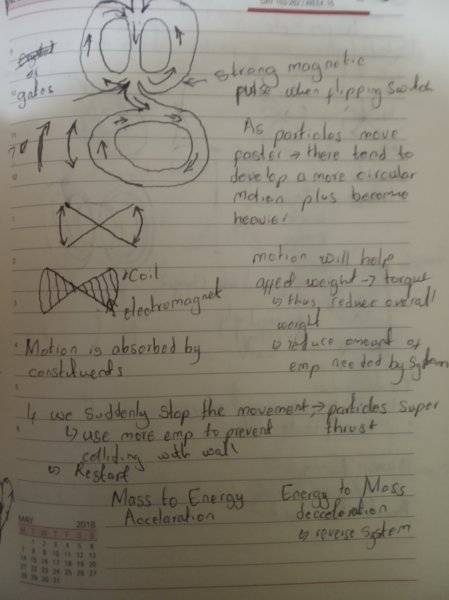 of
gates
strong magnetic
when flipping switch
As particles move
faster → there tend to
develop a more circular
motion plus become
heavier
Coil
electromagnet
motion will help
affect weight → torque
↳ thus reduce overall
weight
↳ reduce amount of
emp needed by system
Motion is absorbed by
constituents
↳ we suddenly stop the movement → particles super
thrust
↳ use more emp to prevent
colliding with wall
↳ Restart
Mass to Energy
Accelaration
Energy to Mass
decceleration
↳ reverse system
MAY 2018